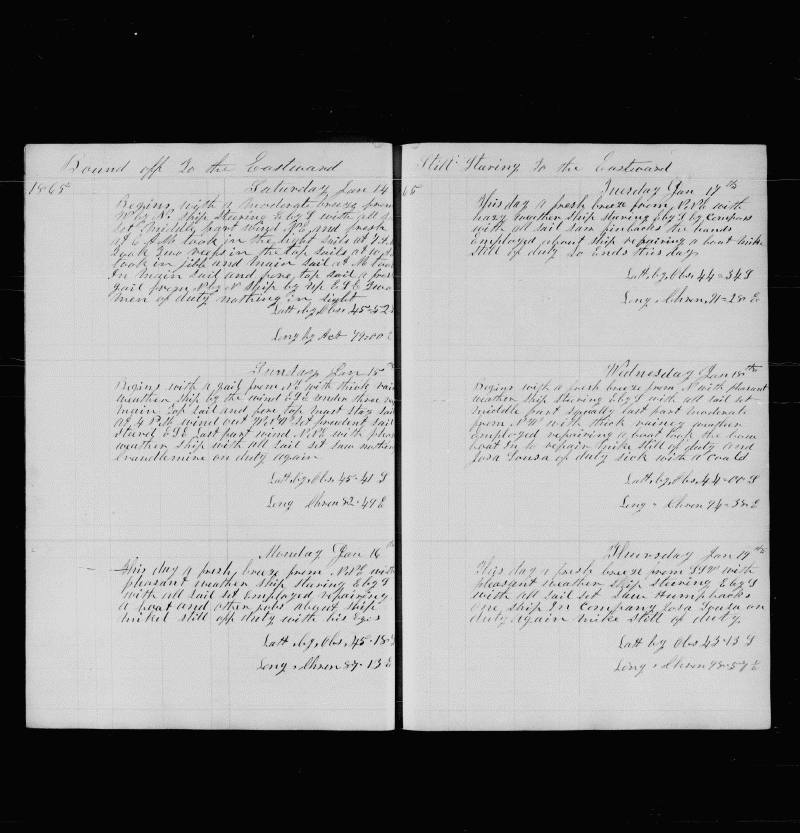 Bound off To the Eastward
1865
Saturday Jan 14
Begins with a moderate breeze from
W by N. ship Staring E by S with all
set Middle part wind NE and fresh
at 6 A.M took in the light sails at 7 A.
Took Two reefs in the top sails at 10
took in jibb and main sail at M took
In main sail and fore top sail a fresh
gail from N by W ship by up E S E Two
men of duty nothing in sight
Latt by Obs 45=52
Long by Act 79=00
Sunday Jan 15
Begins with a gail from NE with thick rain
weather ship by the wind E S E under three
main top sail and fore top mast stay sail
at 4 P.M wind out W.N.W set prudent sail
stared E S E last part wind N.N.E with
weather ship with all sail set saw nothing
on duty again
Latt by Obs 45-41 S
Long Chron 82-49 E
Monday Jan 16
This day a fresh breeze from N.N.E with
pleasant weather ship staring E by S
with all sail set Employed repairing
a boat and other jobs about ship
mikel still off duty with his Eyes
Latt by Obs 45-18 S
Long Chron 87-13 E
Still Staring To the Eastward
65
Tuesday Jan 17th
This day a fresh breeze from N.N.E with
hazy weather ship staring E by S by compass
with all sail saw finbacks the hands
Employed about ship repairing a boat mike
still of duty So Ends this day
Latt by Obs 44=54 S
Long Chron 91=20 E
Wednesday Jan 18th
Begins with a fresh breeze from N with pleasant
weather ship staring E by S with all sail set
middle part squally last part moderate
from N.W with thick rainey weather
Employed repairing a boat took the bow
boat in to repair mike still of duty and
Josa Sousa of duty sick with a coald
Latt by Obs 44=00 S
Long Chron 94=38 E
Thursday Jan 19th
This day a fresh breeze from S S W with
pleasant weather ship steering E by S
with all sail set Saw Humpbacks
one ship In company Josa Sousa on
duty again mike still of duty
Latt by Obs 43-13 S
Long Chron 98-57 E